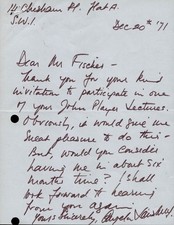 14 Chesham Pl. Flat A.
S.W.1.
Dec 20th '71
Dear Mr Fischer -
Thank you for your kind
invitation to participate in one
of your John Player Lectures.
Obviously, it would give me
great pleasure to do this -
But, would you consider
having me in about six
months time? I shall
look forward to hearing
from you again
Yours Sincerely, Angela Lansbury